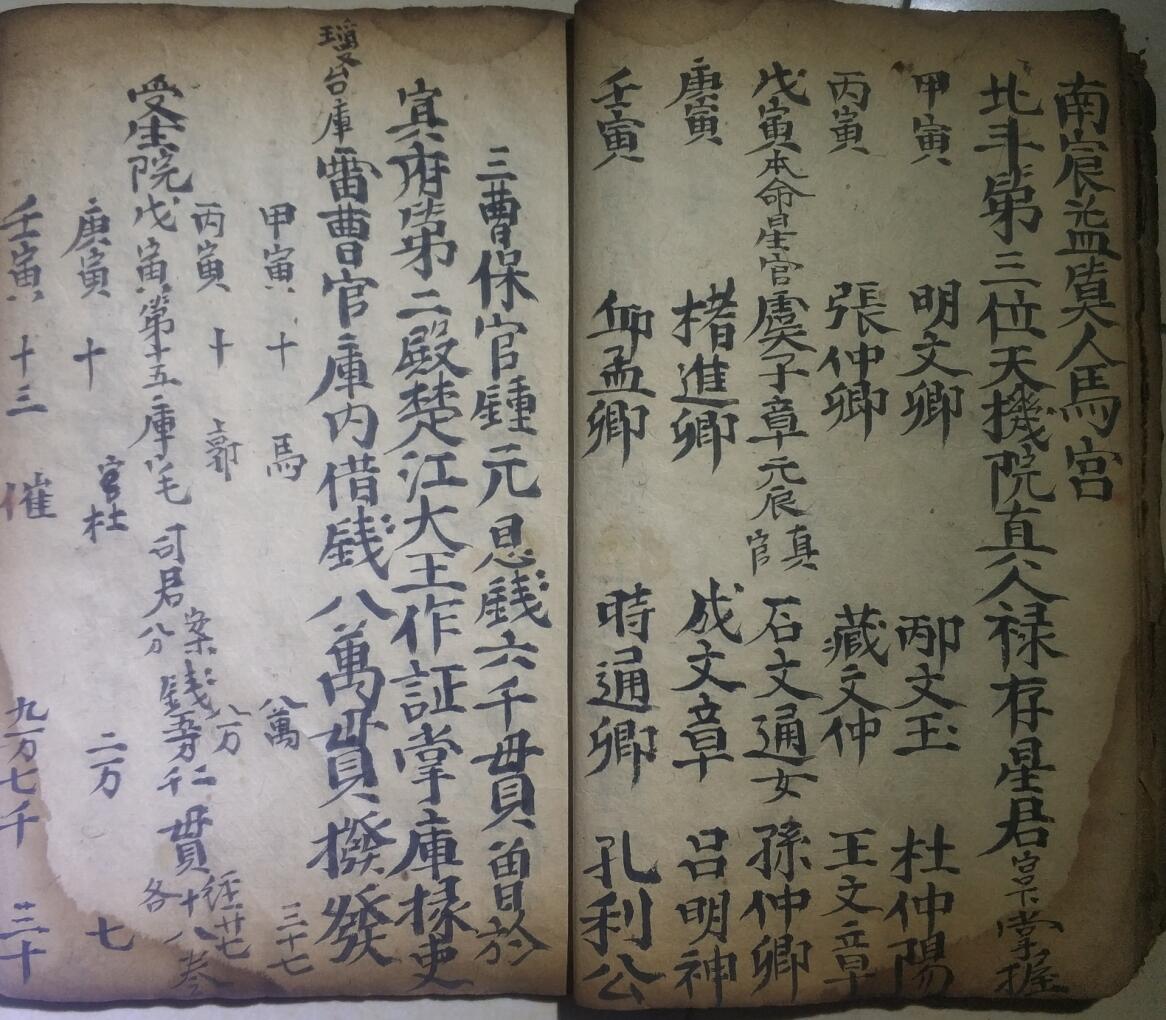 南宸益真人馬宮
北斗第三位天機院真人禄存星君宫下掌握
甲寅 明文卿 邴文玉 杜仲陽
丙寅 張仲卿 藏文仲 王文章
戊寅本命星官虞子章元辰真官 石文通女 孫仲卿
庚寅 楮進卿 成文章 吕明神
壬寅 仰孟卿 時通卿 孔利公
三曹保官鍾元息錢六千貫曾於
冥府第二殿楚江大王作証掌庫掾吏
臺台庫 雷曹官庫内借錢八萬貫撥發
甲寅 十 馬 八萬 三十七
丙寅 十 郭 八万 経廿七
受生院戊寅第十五庫宅司君 錢 千 貫 各十八巻
庚寅 十 宫杜 二万 七
壬寅 十三 催 九万七千 三十